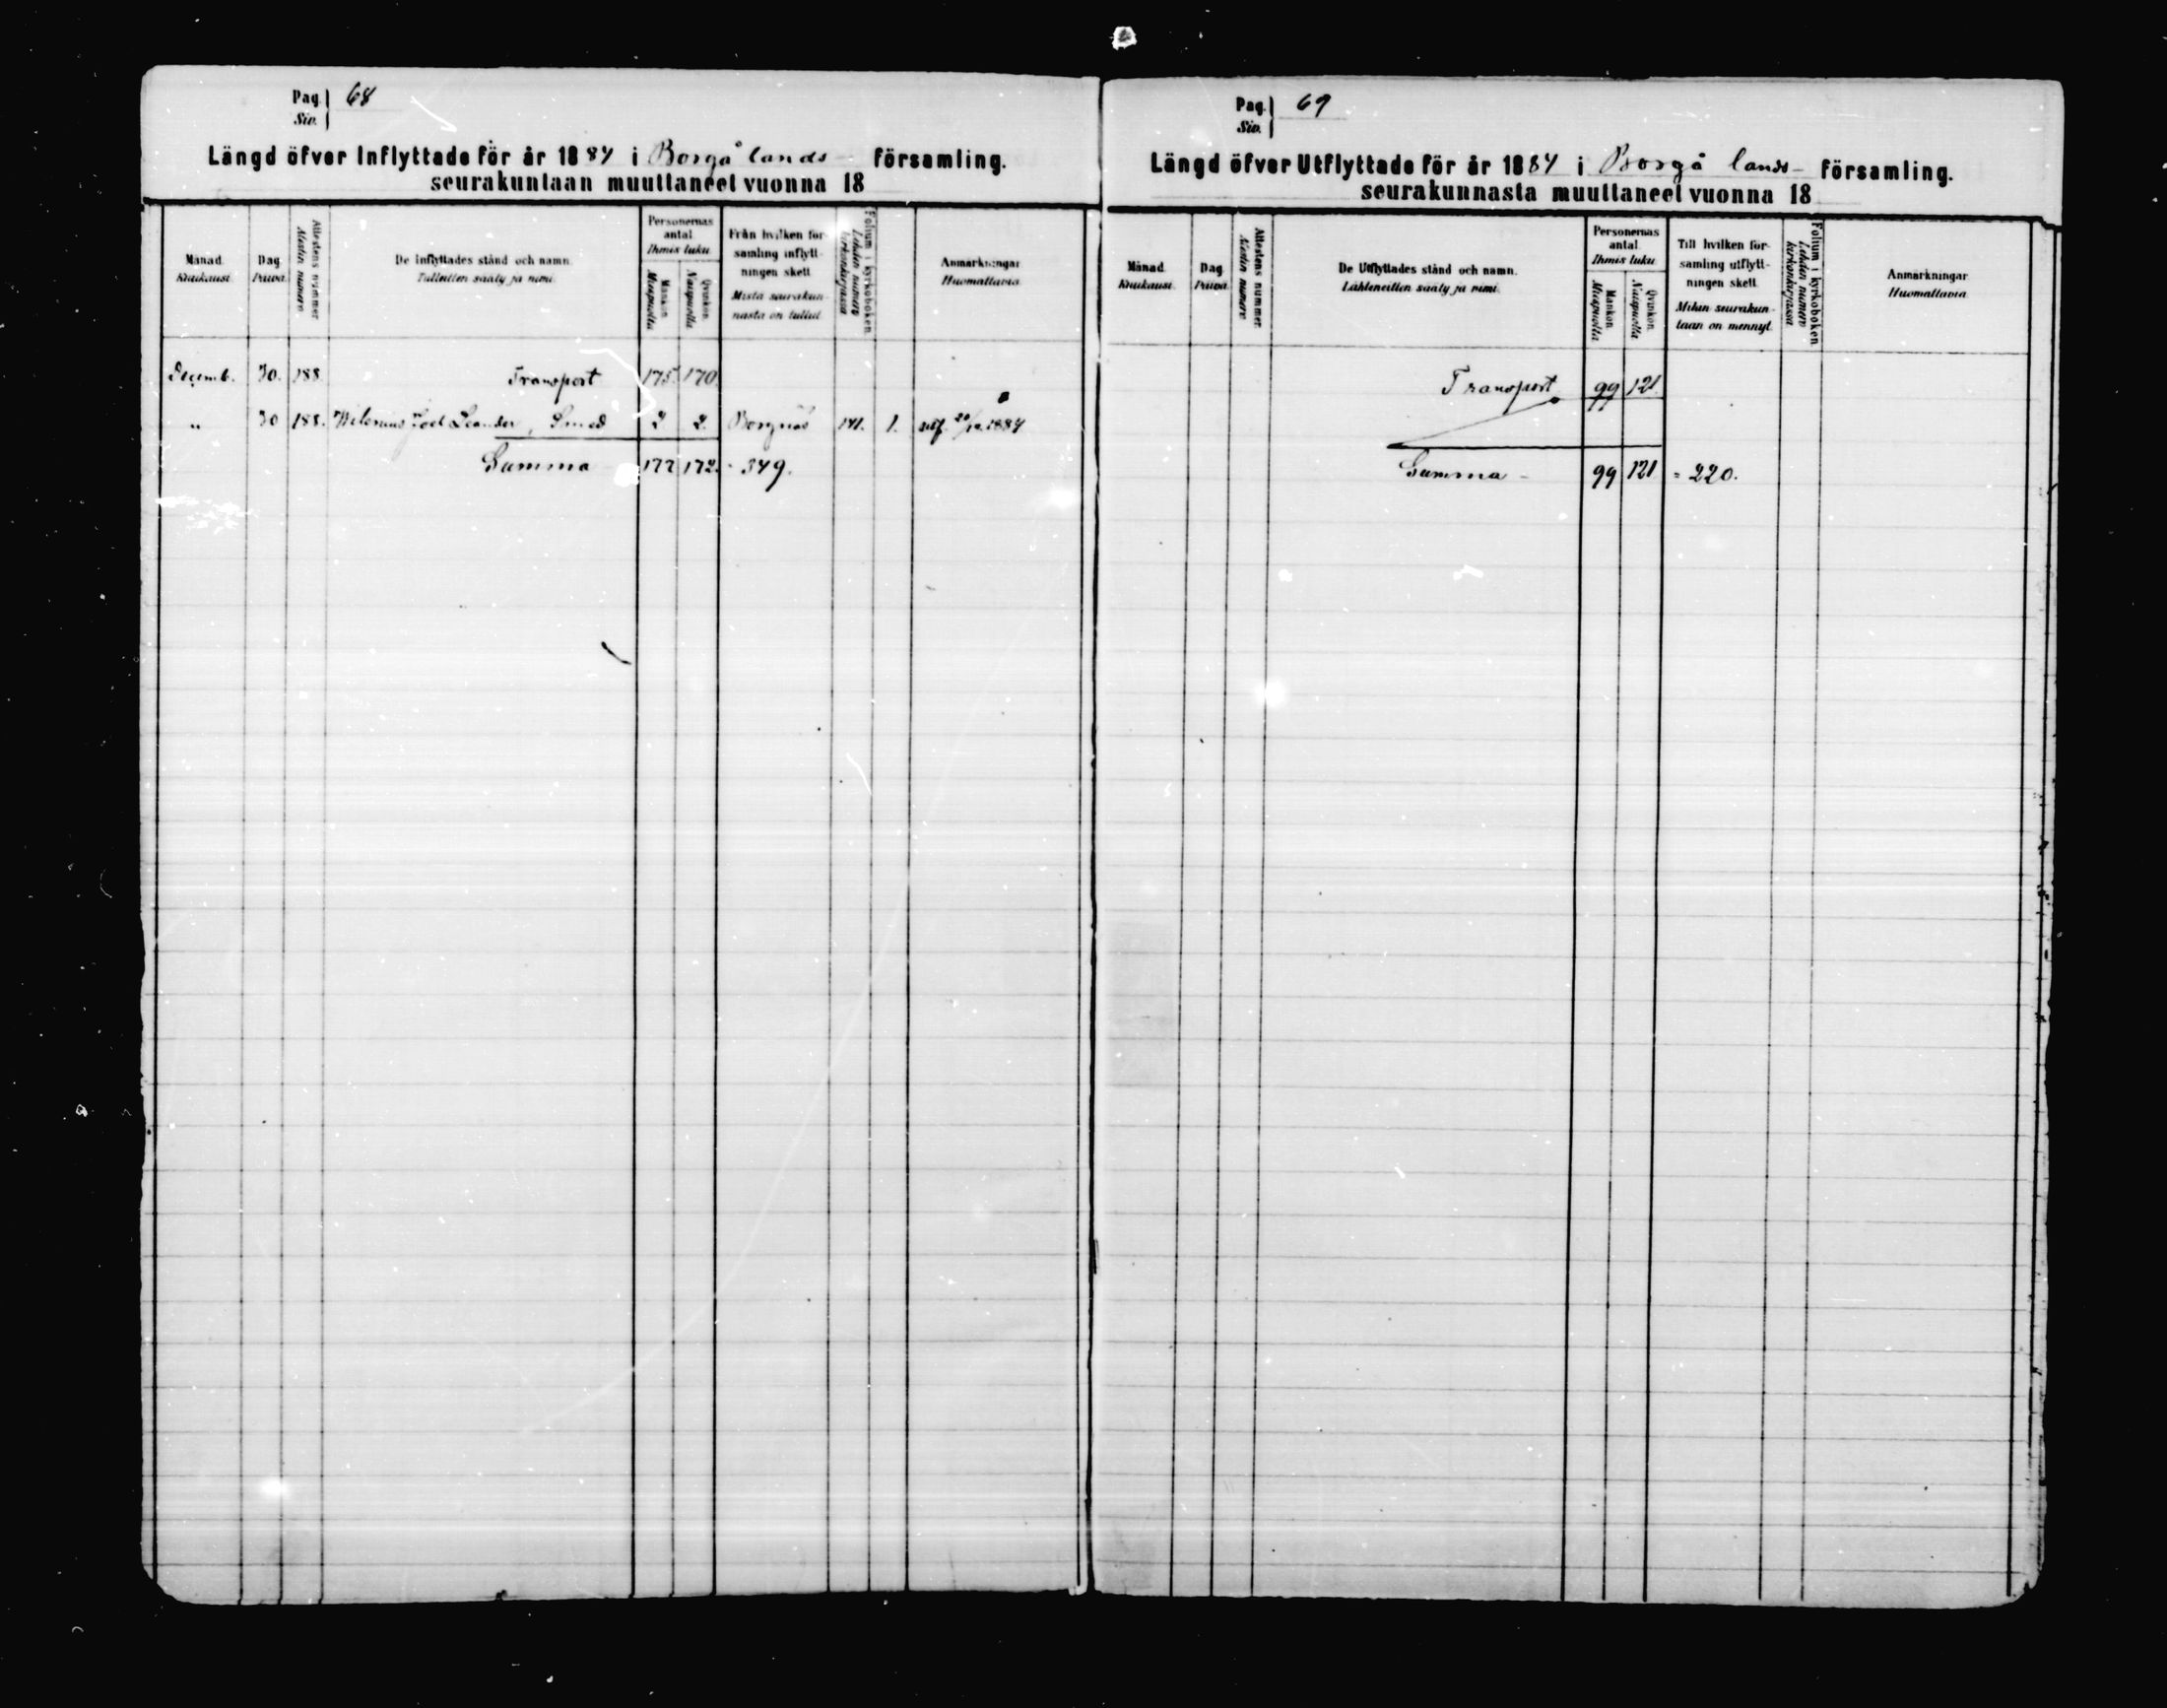 Pag. 68
Siv.
Längd öfver Inflyttade för år 1884 i Borgå lands- församling.
seurakuntaan muuttaneet vuonna 18
Månad. Kuukausi. Dag. Päivä. Attestens nummer. Alestin numero. De inflyttades stånd och namn. Tulleitten sääty ja nimi. Personernas antal. Ihmis luku. Mankön. Miespuolia. Qvinkön. Naispuolia. Från hvilken för- samling inflytt- ningen skett. Mistä seurakun- nasta on tullut. Folium i kyrkoboken. Lehden numero kirkonkirjassa. Anmärkningar. Huomattavia.
Decemb. 30. 188. Transport 175. 170.
" 30 188. Joel Leander, Smed 2 2. Borgnäs 141. 1. 1884
Summa 177 172. - 349.
Pag. 69
Siv.
Längd öfver Utflyttade för år 1884 i Borgå lands- församling.
seurakunnasta muuttaneet vuonna 18
Månad. Kuukausi. Dag. Päivä. Attestens nummer. Alestin numero. De Utflyttades stånd och namn. Lähteneitten sääty ja nimi. Personernas antal. Ihmis luku. Mankön. Miespuolia. Qvinkön. Naispuolia. Till hvilken för- samling utflytt- ningen skett. Mihin seurakun- taan on mennyt. Folium i kyrkoboken. Lehden numero kirkonkirjassa. Anmärkningar. Huomattavia.
Transport 99 121.
Summa - 99 121 = 220.